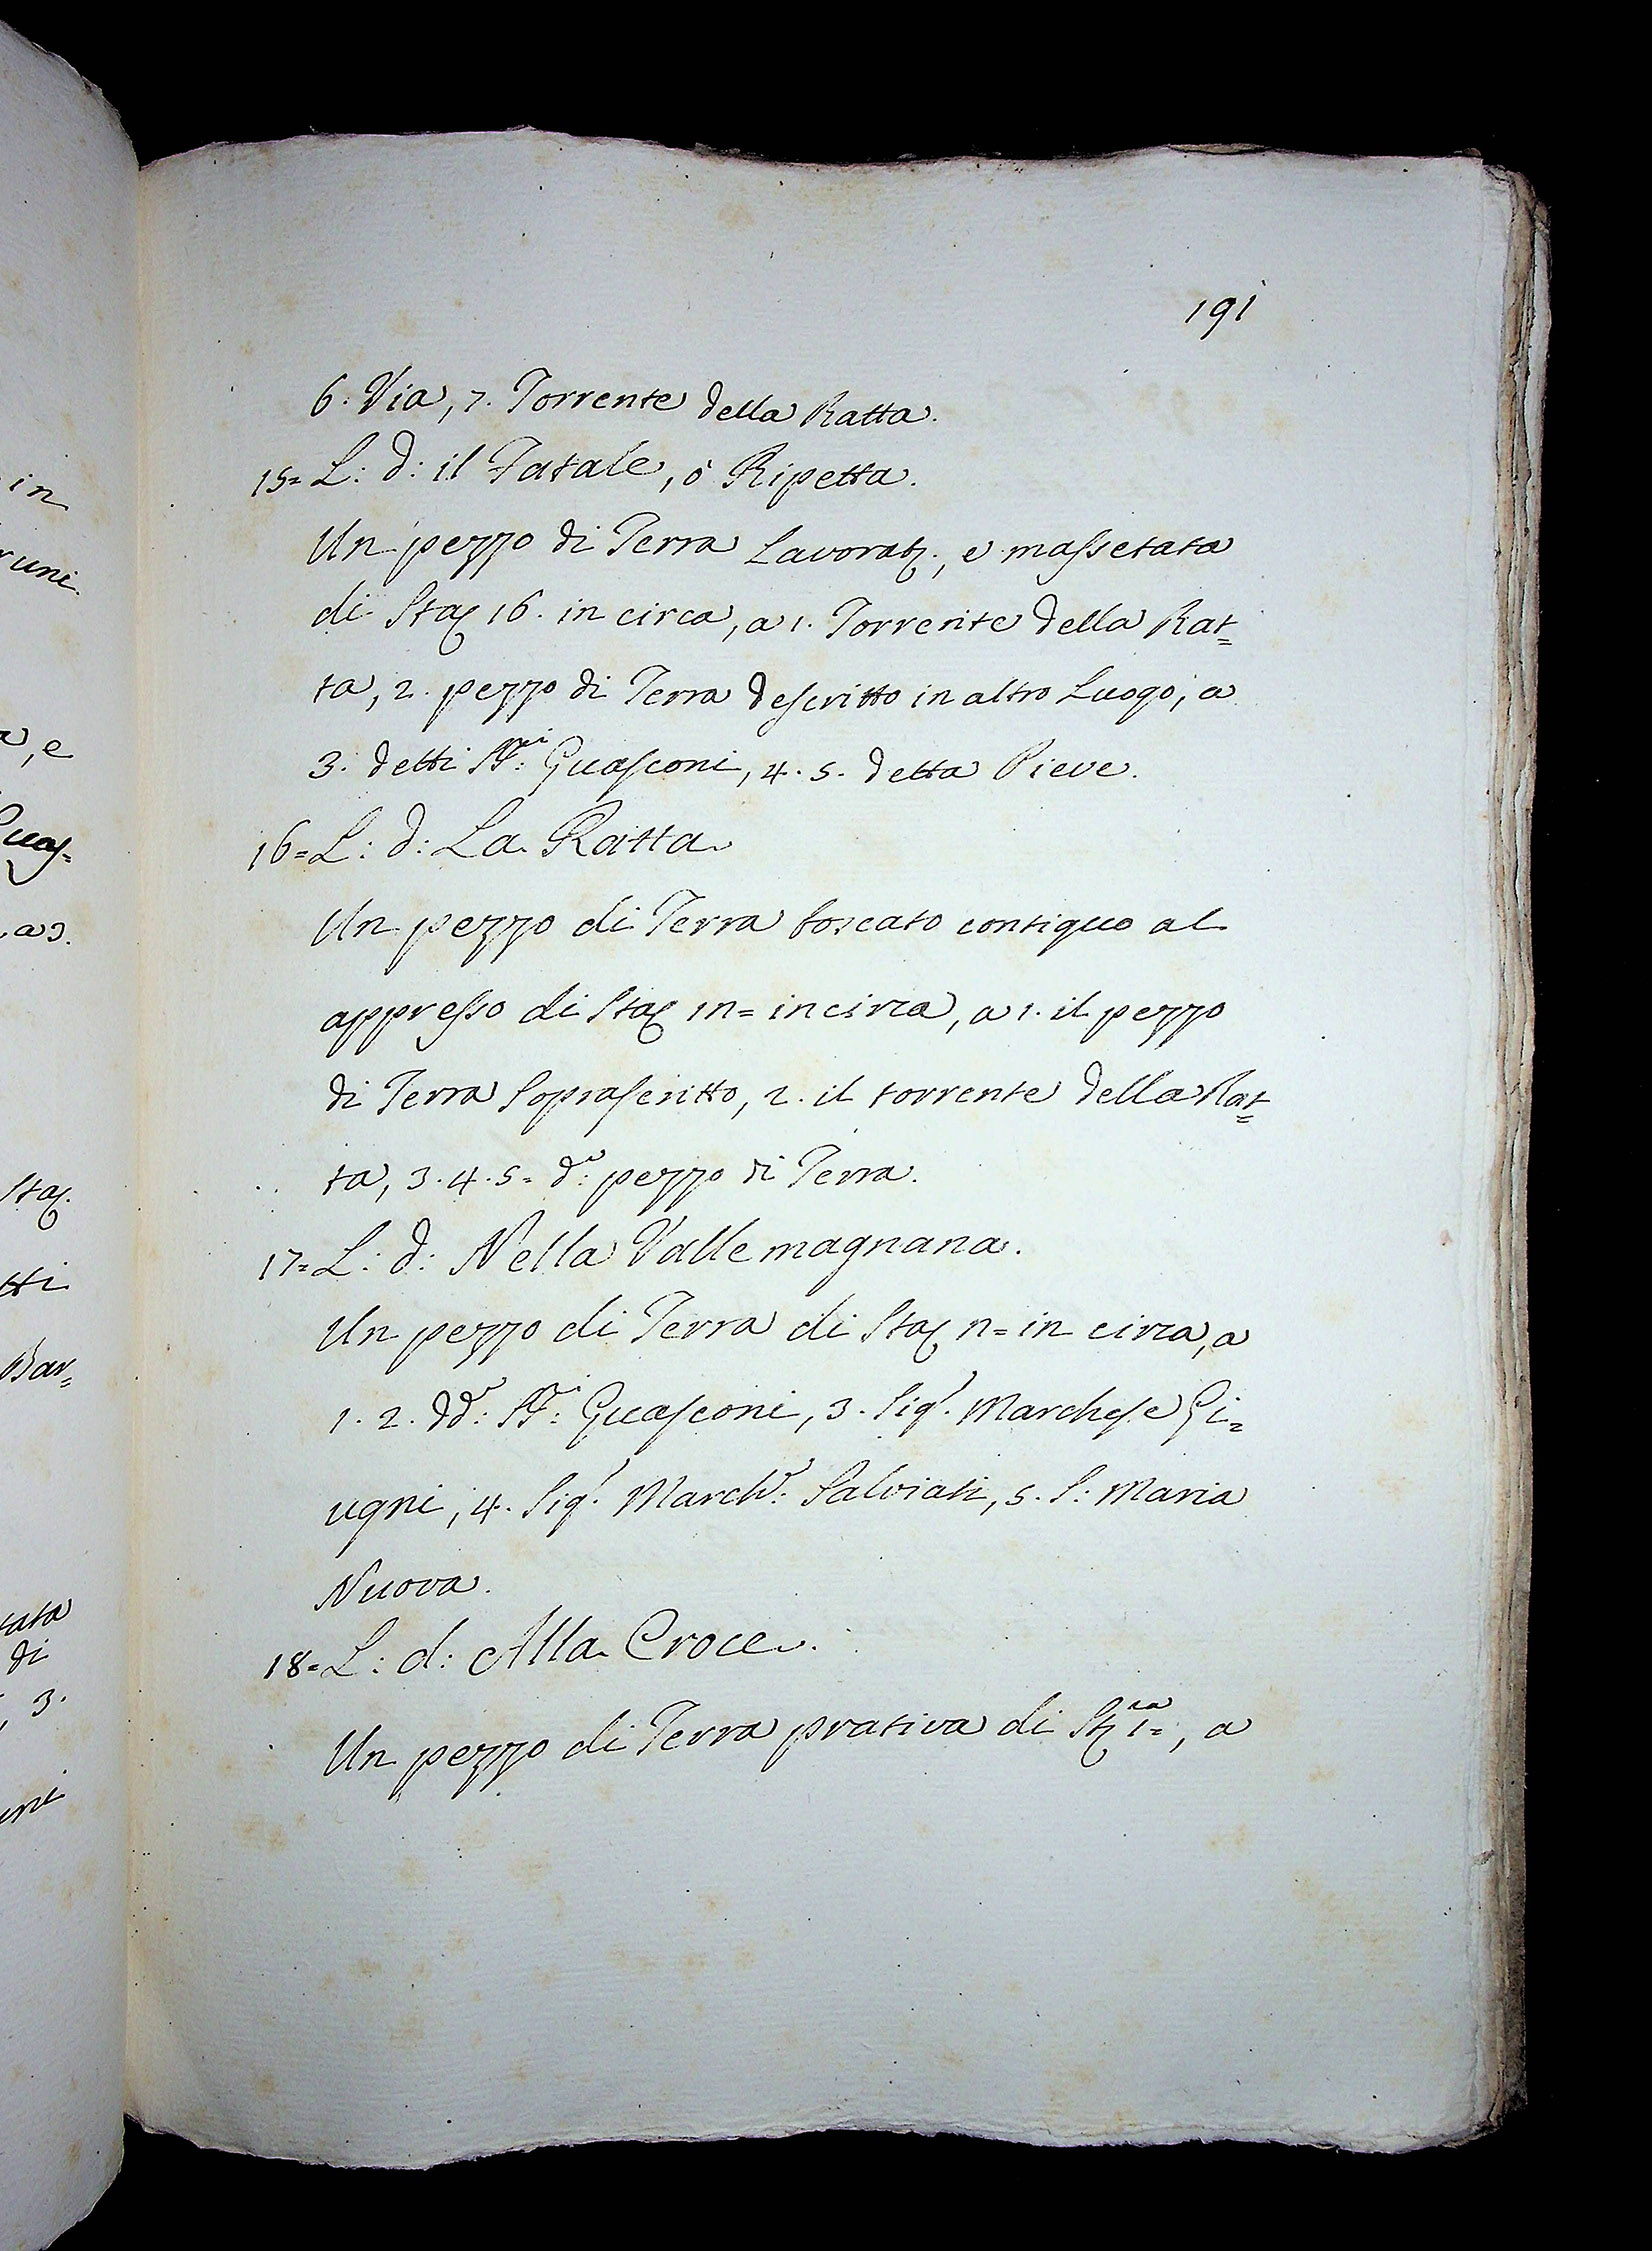 in
uni.
a, e
Guas=
, a 3.
Stag.
tti
Bar=
tata
di
, 3.
191
6. Via, 7. Torrente della Ratta.
15= L: d: il Fatale, ò Ripetta.
Un pezzo di Terra Lavorat:, e massetata
di Sta: 16. in circa, a 1. Torrente della Rat=
ta, 2. pezzo di Terra descritto in altro Luogo, a
3. detti SS:ri Guasconi, 4. 5. detta Pieve.
16= L: d: La Ratta
Un pezzo di Terra boscato contiguo al
appresso di Sta: in circa, a 1. il pezzo
di Terra Soprascritto, 2. il torrente della Rat=
ta, 3. 4. 5= d:o pezzo di Terra.
17= L: d: Nella Valle magnana.
Un pezzo di Terra di Sta: n= in circa, a
1. 2. dd:i SS:ri Guasconi, 3. Sig.r Marchese Gi=
ugni, 4. Sig.r March:e Salviati, 5. S: Maria
Nuova.
18= L: d: Alla Croce.
Un pezzo di Terra prativa di St: 1=, a